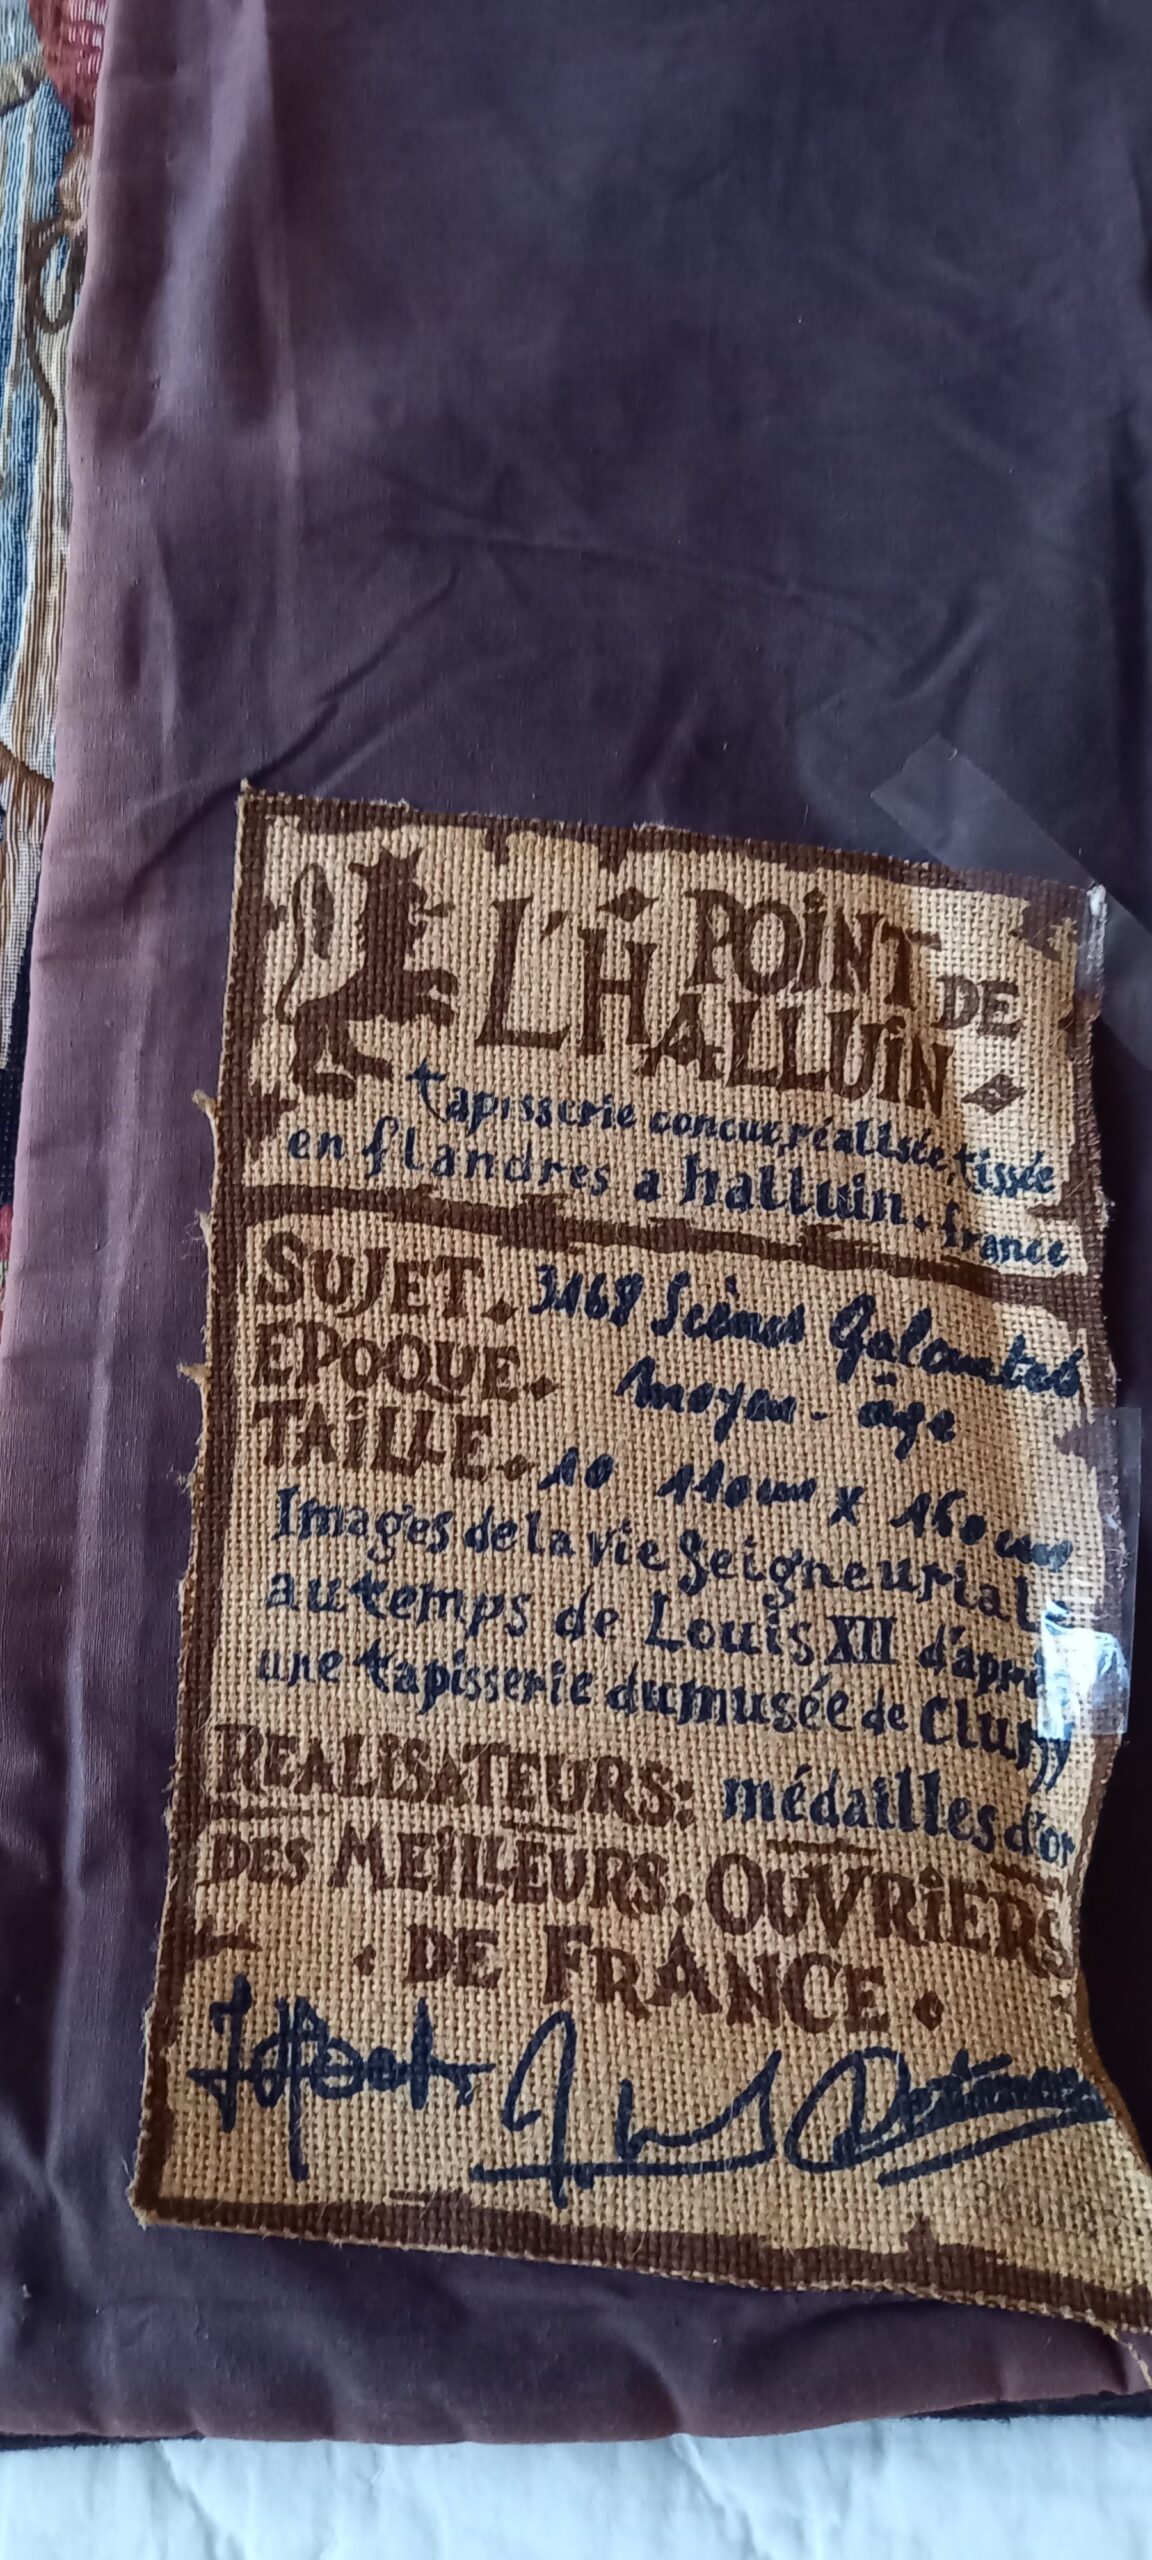 POINT DE
L'HALLUIN
tapisserie concue, réalisée, tissée
en flandres a halluin. france
SUJET. 3168 Scènes Galantes
EPOQUE. moyen-âge
TAILLE. 10 110 cm x 160 cm
Images de la vie Seigneuriale
au temps de Louis XII d'après
une tapisserie du musée de Cluny
REALISATEURS: médailles d'or
DES MEILLEURS. OUVRIERS
. DE FRANCE .